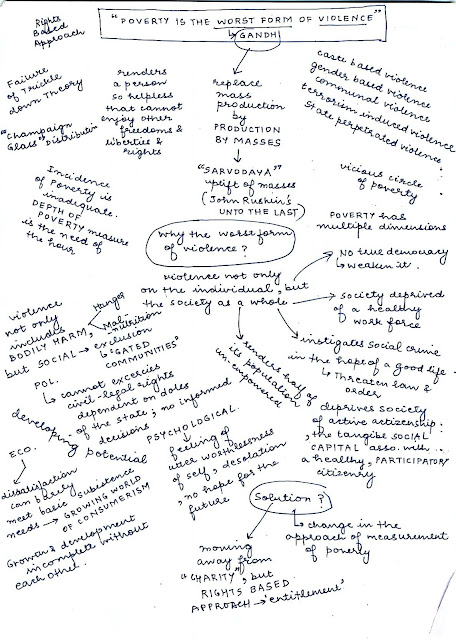 Rights
Based
Approach
"POVERTY IS THE WORST FORM OF VIOLENCE"
↳ GANDHI
Failure
of Trickle
down Theory
"Champaign
Glass" Distribution
renders
a person
so helpless
that cannot
enjoy other
freedoms &
liberties &
rights
replace
mass
production
by
PRODUCTION
BY MASSES
caste based violence
gender based violence
communal violence
terrorism induced violence
state perpetrated violence
"SARVODAYA"
uplift of masses
(John Ruskin's
UNTO THE LAST)
vicious circle
of poverty
Incidence
of Poverty is
inadequate.
DEPTH OF
POVERTY measure
is the need of
the hour
POVERTY has
multiple dimensions
Why the worst form
of violence?
violence not only
on the individual, but
the society as a whole
→ No true democracy
↳ weaken it.
→ society deprived
of a healthy
work force
instigates social crime
in the hope of a good life
↳ Threaten law &
order
renders half of
its population
un-empowered
deprives society
of active actizenship.
, the tangible SOCIAL
CAPITAL asso. with ...
a healthy, PARTICIPATORY
citizenry
violence
not only
includes
BODILY HARM,
Hunger
Malnutrition
but SOCIAL → exclusion
↳ "GATED
COMMUNITIES"
POL.
↳ cannot excercies
civil-legal rights
dependent on doles
of the state; no informed
decisions
developing potential
PSYCHOLOGICAL
feeling of
utter worthlessness
of self, desolation
, no hope for the
future
ECO.
dissatisfaction
can barely
meet basic subsistence
needs → GROWING WORLD
OF CONSUMERISM
Growth & development
incomplete without
each other.
Solution?
↳ change in the
approach of measurement
of poverty
moving
away from
"CHARITY", but
RIGHTS BASED
APPROACH → 'entitlement'